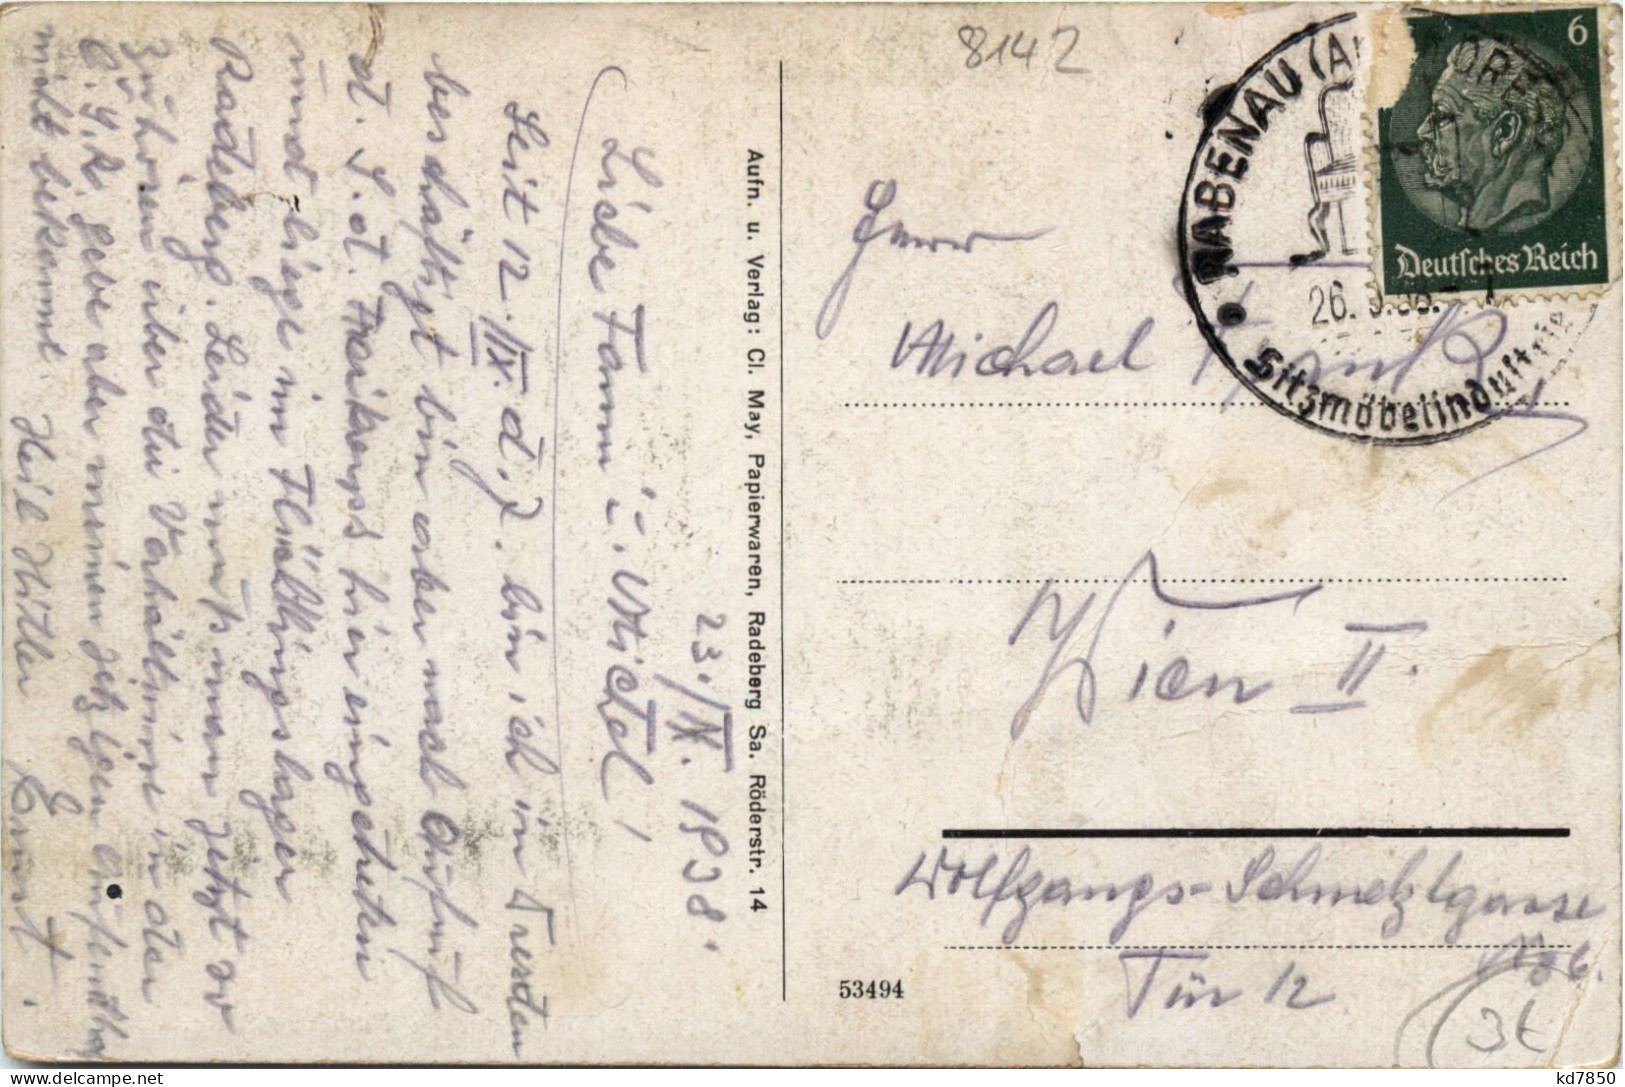 8142
6
Deutsches Reich
RABENAU (A DRES
26. 9.38.- 7
Sitzmöbelindustrie
Herrn
Michael
Wien II.
Wolfgangs-Schmelzlgasse
Tür 12
53494
3t
Aufn. u. Verlag: Cl. May, Papierwaren, Radeberg Sa. Röderstr. 14
23./IX. 1938.
Liebe Fanni u. Michel!
Seit 12./IX. d. J. bin ich in Dresden
beschäftigt bin aber nach Aufruf
d. S. d. Freikorps hier eingetreten
und liege im Flüchtlingslager
Radeberg. Leider muß man jetzt so
zuhören über die Verhältnisse in der
Č.S.R. gebe aber meinen jetzigen Aufenthalt
nicht bekannt. Heil Hitler Ernst.
kd7850